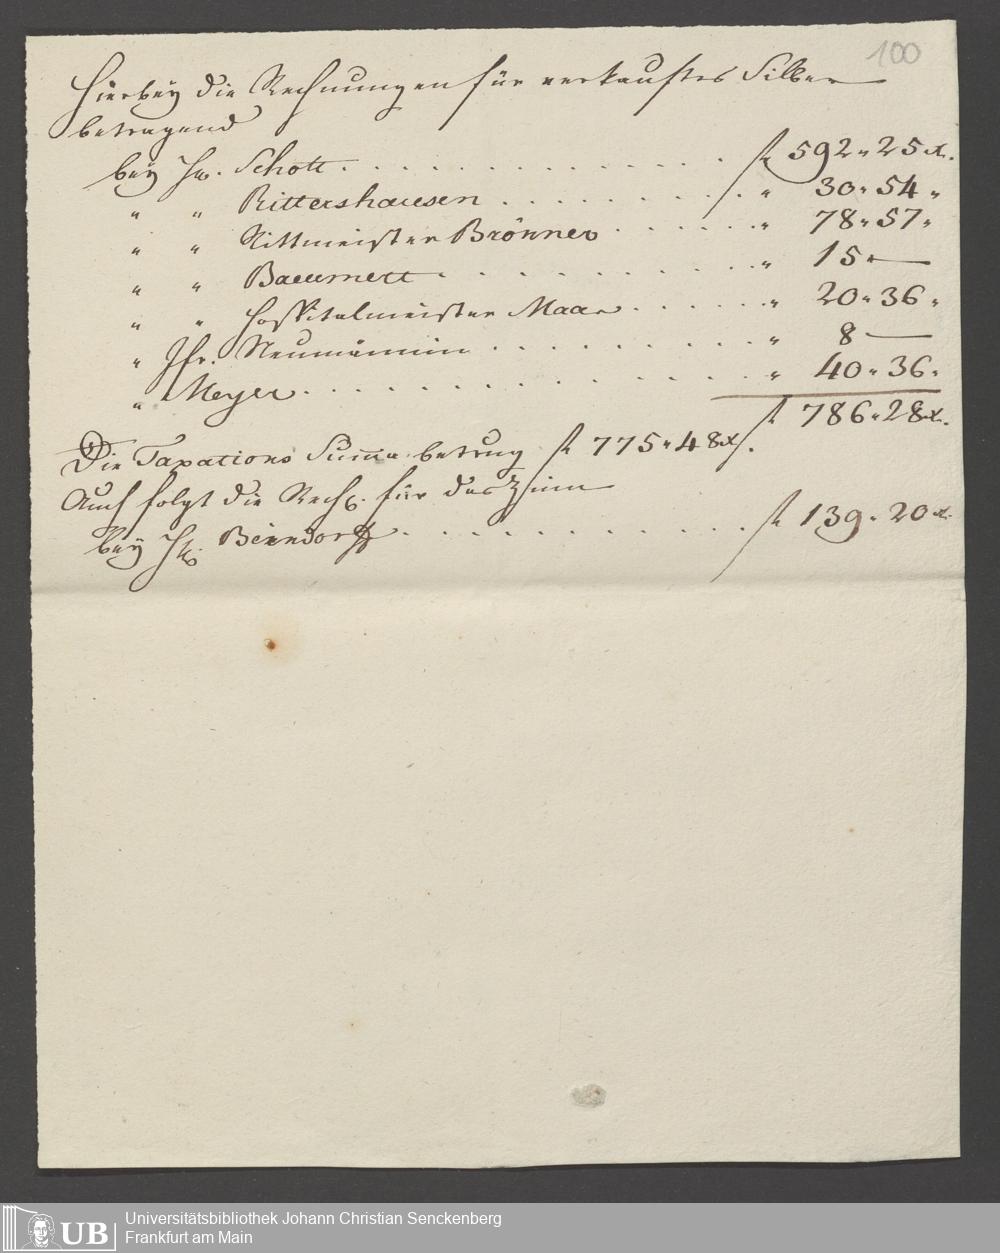 100
Hierbey die Rechnungen für verkauftes Silber
betragend
bey Hr. Schott . . . . . . . . . . . . . f 592 " 25 x.
" " Rittershausen . . . . . . . . . " 30 " 54 "
" " Rittmeister Brönner . . . . . . " 78 " 57 "
" " Baeumert . . . . . . . . . " 15 " —
" " Hospitalmeister Maar . . . . . . " 20 " 36 "
" Jfr. Neumännin . . . . . . . . . " 8 —
" Meyer . . . . . . . . . . . . . . " 40 " 36 "
f 786 " 28 x.
Die Taxations Suma betrug f 775 " 48 x.
Auch folgt die Rech. für das Zinn
bey Hr. Beindorff . . . . . . . . . . . f 139 " 20 x.
UB
Universitätsbibliothek Johann Christian Senckenberg
Frankfurt am Main